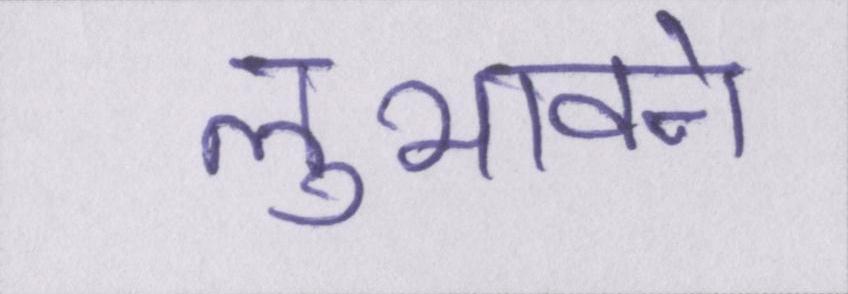 लुभावने